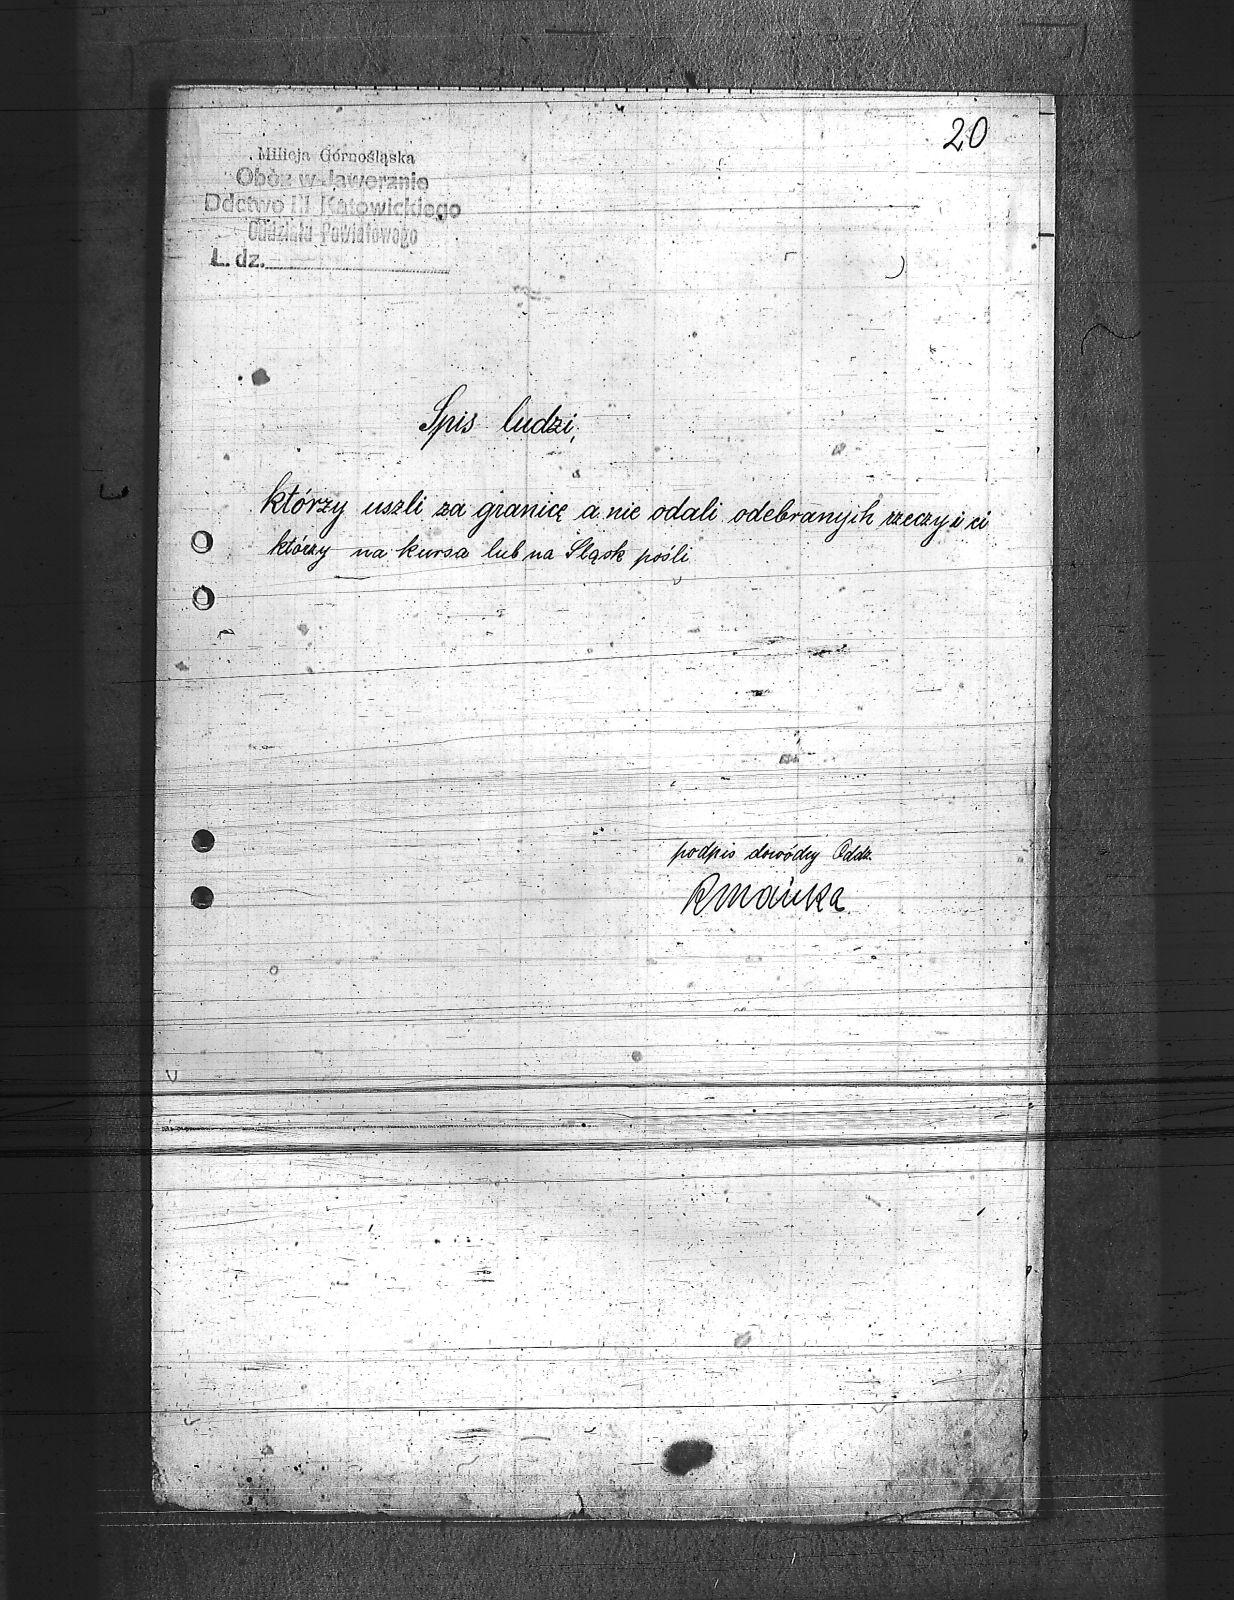 20
Milicja Górnośląska
Obóz w Jaworznie
Ddctwo III Katowickiego
Oddziału Powiatowego
L. dz.
Spis ludzi,
którzy uszli za granicę a nie odali odebranych rzeczy i ci
którzy na kursa lub na Śląsk pośli
podpis dowódcy Oddz.
RMańka